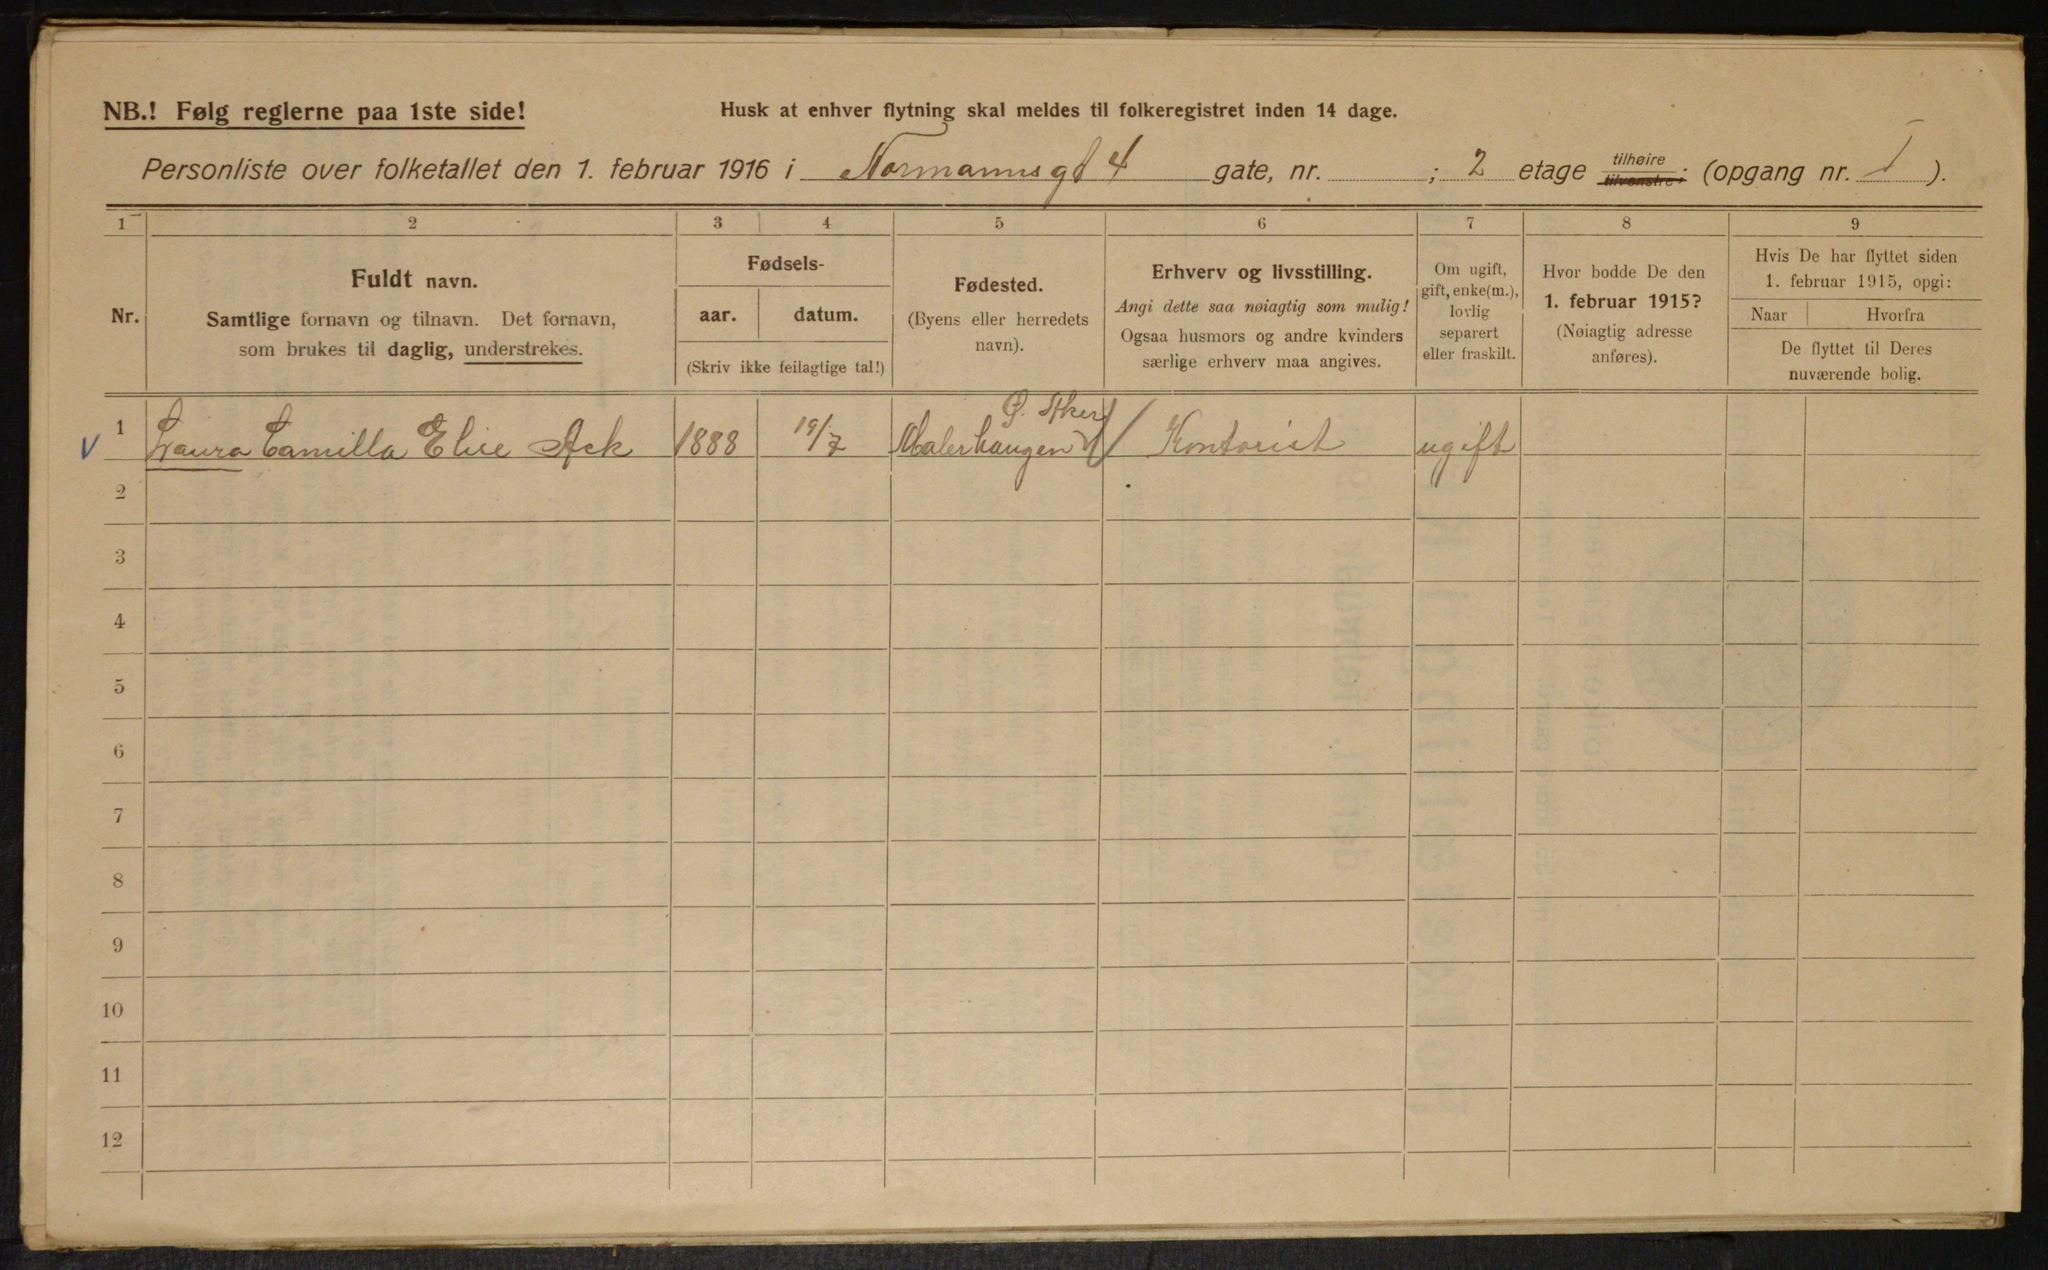 NB.! Følg reglerne paa 1ste side!
Husk at enhver flytning skal meldes til folkeregistret inden 14 dage.
Personliste over folketallet den 1. februar 1916 i Normannsgt 4 gate, nr. ; 2 etage tilhøire tilvenstre; (opgang nr. I ).
1 2 3 4 5 6 7 8 9
Nr.
Fuldt navn.
Samtlige fornavn og tilnavn. Det fornavn,
som brukes til daglig, understrekes.
Fødsels-
aar. datum.
(Skriv ikke feilagtige tal!)
Fødested.
(Byens eller herredets
navn).
Erhverv og livsstilling.
Angi dette saa nøiagtig som mulig!
Ogsaa husmors og andre kvinders
særlige erhverv maa angives.
Om ugift,
gift, enke(m.),
lovlig
separert
eller fraskilt.
Hvor bodde De den
1. februar 1915?
(Nøiagtig adresse
anføres).
Hvis De har flyttet siden
1. februar 1915, opgi:
Naar Hvorfra
De flyttet til Deres
nuværende bolig.
Ø. Aker
1 Laura Camilla Elise Ack 1888 19/7 Malerhaugen Kontorist ugift
2
3
4
5
6
7
8
9
10
11
12